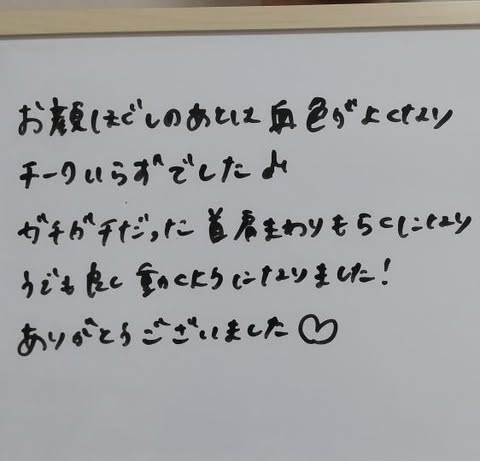 お顔ほぐしのあとは血色がよくなり
チークいらずでした♪
ガチガチだった首肩まわりもらくになり
うでも良く動くようになりました！
ありがとうございました♡